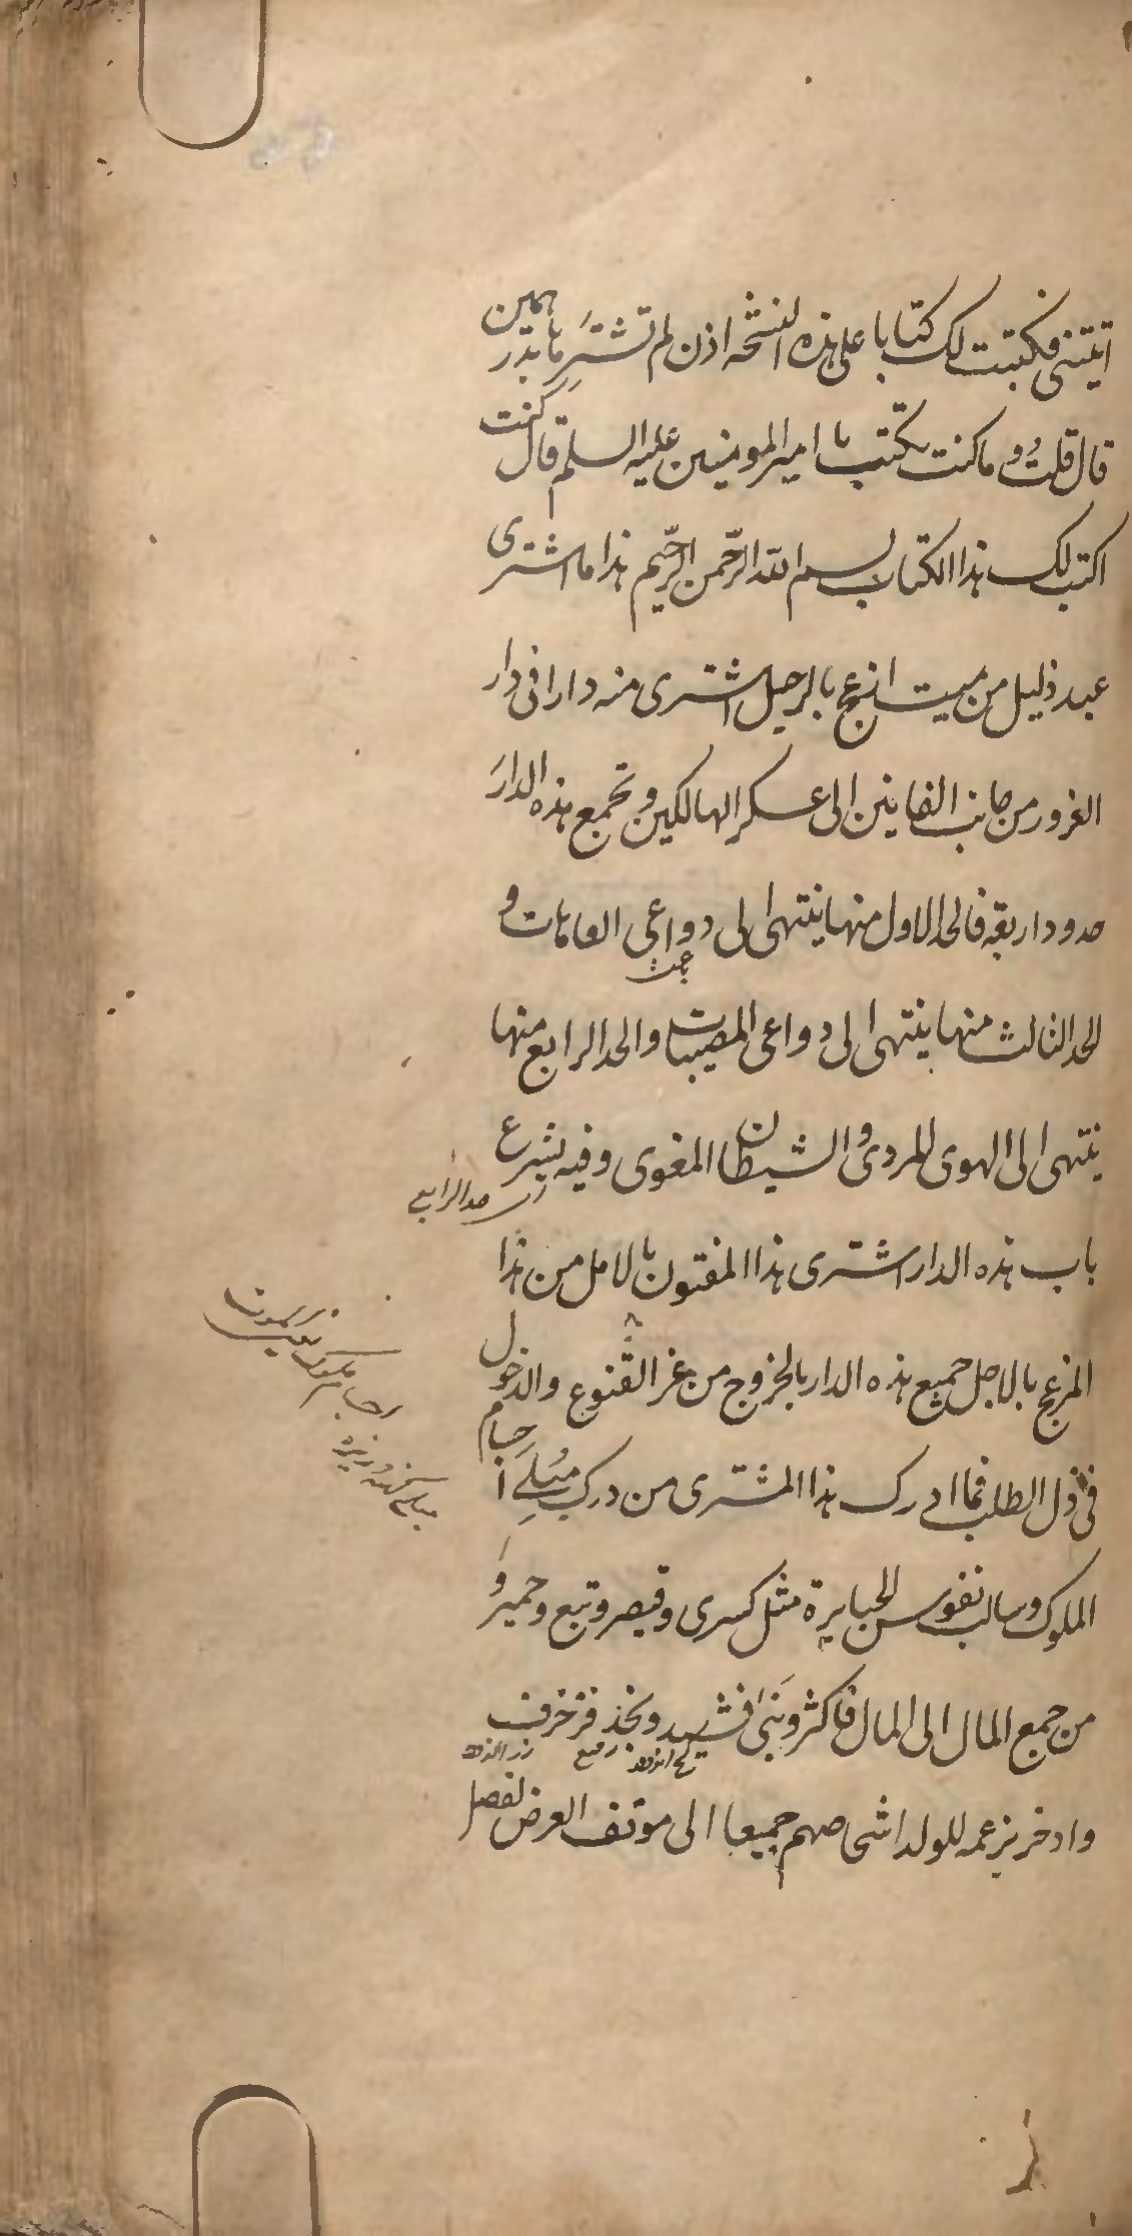 اتيتنى فكتبت لك كتابا على هذه النسخه اذن لم تشتر ما بدرهمين
قال قلت و ما كنت تكتب يا امير المومنين عليه السلم قال كنت
اكتب لك هذا الكتاب بسم الله الرّحمن الرّحيم هذا ما اشترى
عبد ذليل من ميت ازعج بالرحيل اشترى منه دارا فى دار
الغرور من جانب الفانين الى عسكر الهالكين و تجمع هذه الدار
حدود اربعة فالحد الاول منها ينتهى الى دواعى العاهات و
الحد الثالث منها ينتهى الى دواعى المصيبات و الحد الرابع منها
ينتهى الى الهوى المردى و الشيطان المغوى و فيه يشرع
باب هذه الدار اشترى هذا المفتون بالامل من هذا
المزعج بالاجل جميع هذه الدار بالخروج من عز القنوع والدخول
فى ذل الطلب فما ادرك هذا المشترى من درك مبلى اجسام
الملوك و سالب نفوس الجبابرة مثل كسرى و قيصر و تبع و حمير و
من جمع المال الى المال فاكثر و بنى فشيد و نجد فزخرف
وادخر بزعمه للولد اشخاصهم جميعا الى موقف العرض لفصل